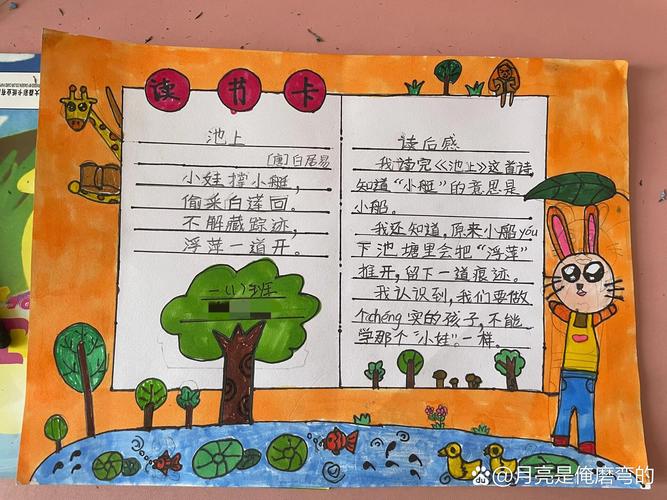 读书卡
池上
[唐]白居易
小娃撑小艇，
偷采白莲回。
不解藏踪迹，
浮萍一道开。
一(1)班
读后感
我读完《池上》这首诗，
知道“小艇”的意思是
小船。
我还知道，原来小船yóu
下池塘里会把“浮萍”
推开，留下一道痕迹。
我认识到，我们要做
个chéng实的孩子，不能
学那个“小娃”一样。
du
@月亮是俺磨弯的